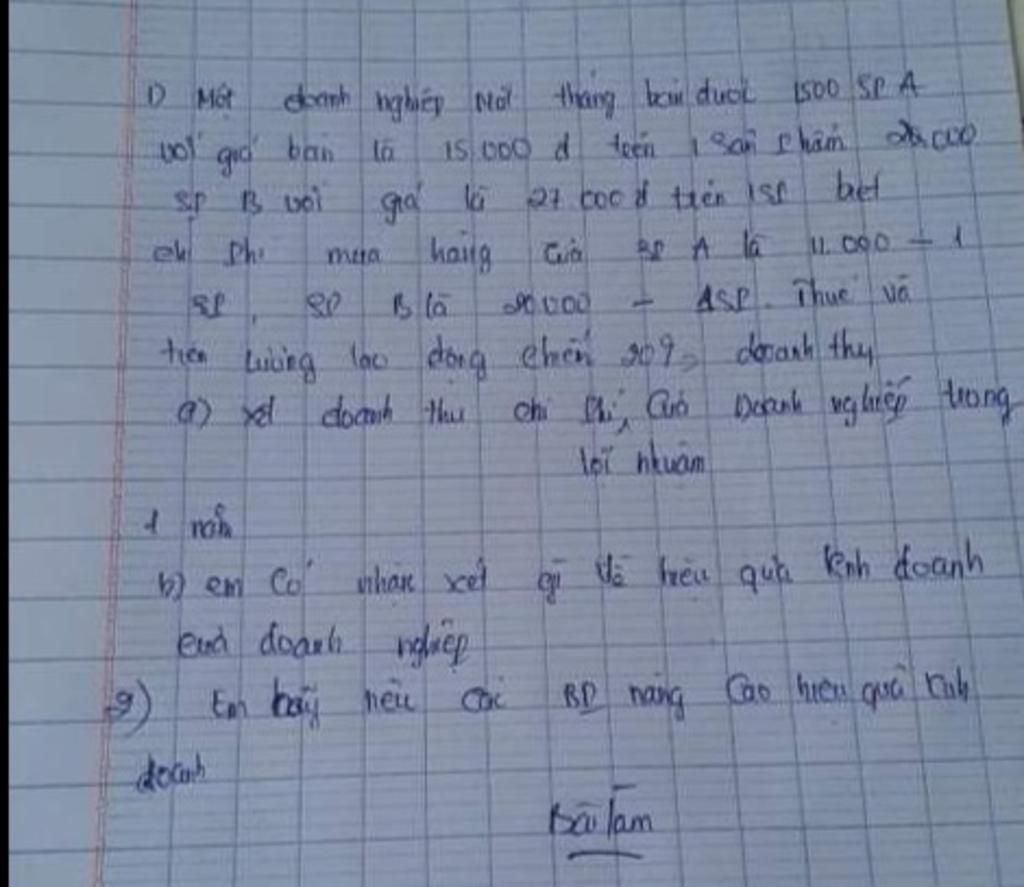 1) Một doanh nghiệp Mỗi tháng bán được 1500 SP A
với giá bán là 15 000 đ trên 1 sản phẩm
SP B với giá là 27 000đ trên 1SP biết
chi phi mua hàng của SP A là 11.000 - 1
SP, SP B là 20000 - 1SP. Thuế và
tiền lương lao động chiếm 20% doanh thu
a) xđ doanh thu chi phí, của Doanh nghiệp trong
lợi nhuận
1 năm
b) em Có nhận xét gì về hiệu quả kinh doanh
của doanh nghiệp
2) Em hãy nêu các BP nâng Cao hiệu quả kinh
doanh
Bài làm